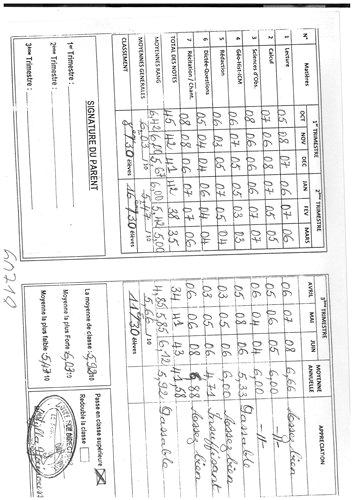 N° Matières 1er TRIMESTRE 2ème TRIMESTRE 3ème TRIMESTRE MOYENNE ANNUELLE APPRECIATION
OCT NOV DEC JAN FEV MARS AVRIL MAI JUIN
1 Lecture 05 08 07 06 07 06 06 07 08 6,66 Assez bien
2 Calcul 07 06 08 07 05 06 05 6,00 -//-
3 Sciences d'Obs. 08 08 06 07 07 07 06 04 04 6,00 -//-
4 Géo-His-ICM 06 07 05 05 03 03 05 08 5,33 Passable
5 Rédaction 06 03 05 07 05 04 03 05 06 6,00 Assez bien
6 Dictée-Questions 05 04 04 06 04 04 03 05 06 4,71 Insuffisant
7 Récitation / Chant. 08 08 06 07 07 06 06 06 6,88 Assez bien
TOTAL DES NOTES 45 42 41 42 38 35 34 41 43 41,58
MOYENNES RANG 6,42 6,00 5,67 6,00 5,42 5,00 4,85 5,83 6,12 5,92 Passable
MOYENNES GENERALES 6,03/10 5,47/10 5,66/10
CLASSEMENT 8e/30 élèves 16e/30 élèves 11e/30 élèves
SIGNATURE DU PARENT
1er Trimestre :
2ème Trimestre :
3ème Trimestre :
La moyenne de classe 5,92/10
Moyenne la plus Forte 6,03/10
Moyenne la plus faible 5,47/10
Passe en classe supérieure
Redouble la classe
60719